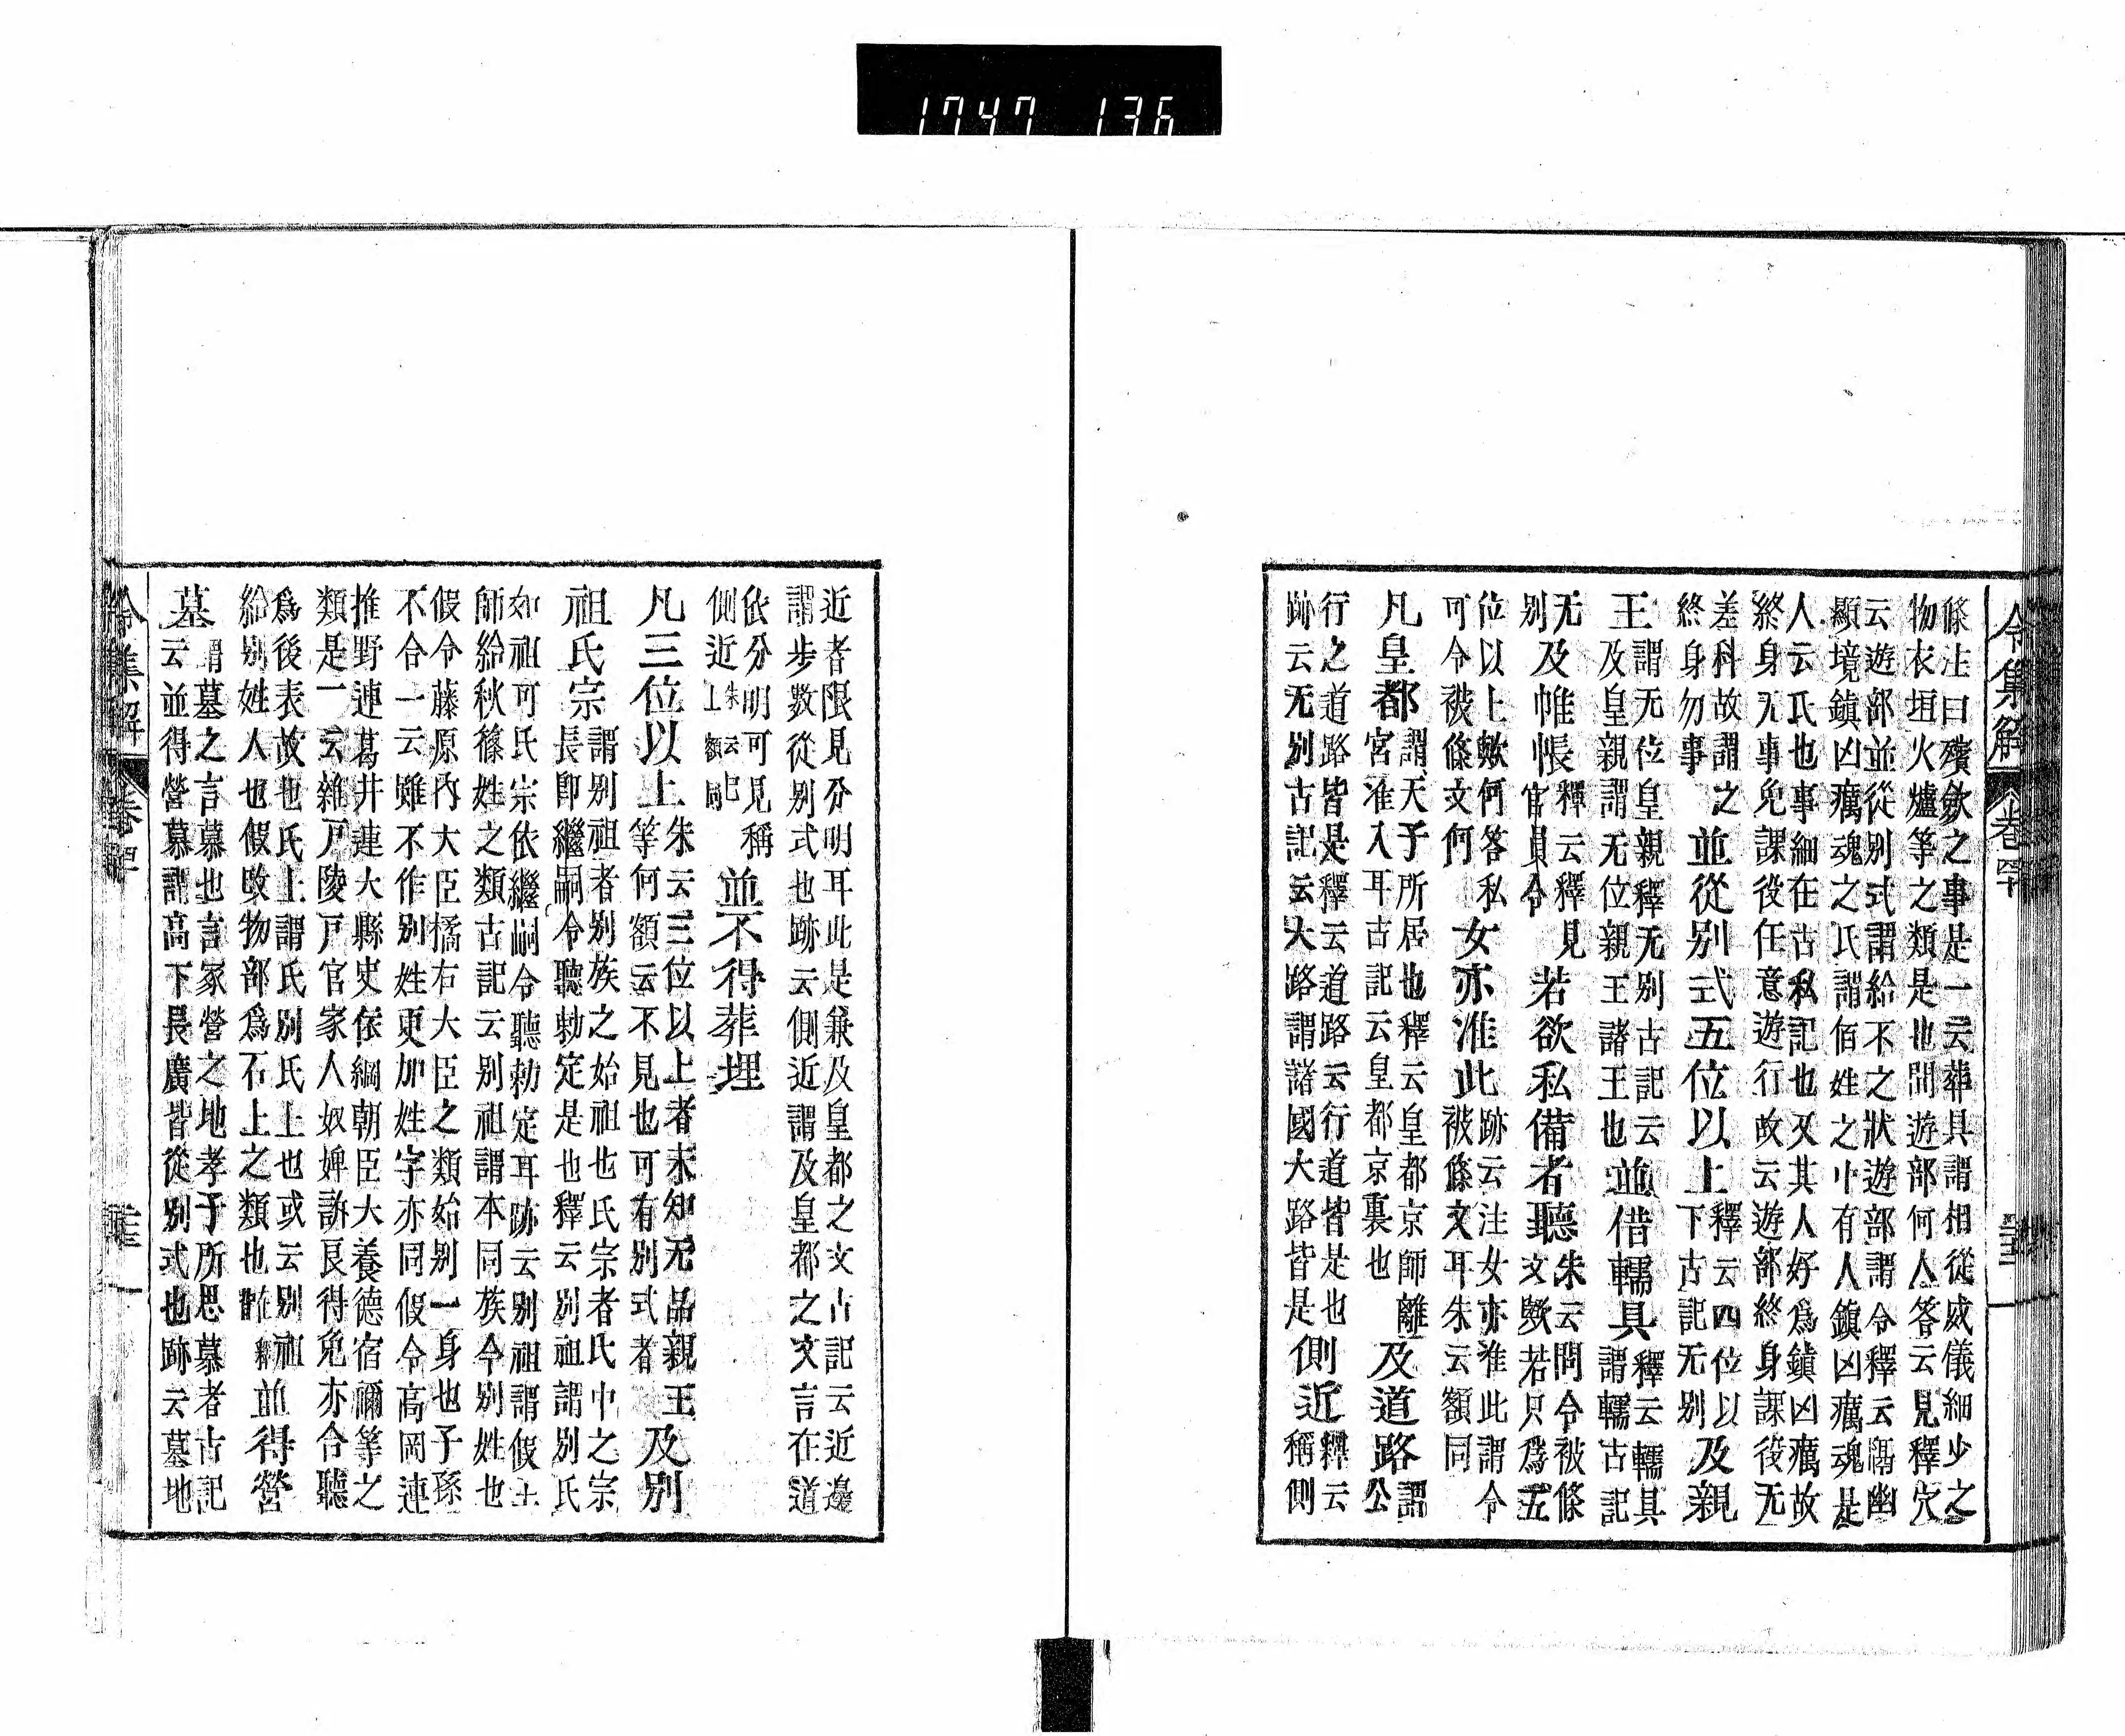 1747 136
令集解 卷四十
條注曰殯歛之事是一云葬具謂相從威儀細少之
物衣垣火爐等之類是也問遊部何人答云見釋穴
云遊部並從別式謂給不之狀遊部謂令釋云隔幽
顯境鎭凶癘魂之氏謂佰姓之中有人鎭凶癘魂是
人云氏也事細在古私記也又其人好爲鎮凶癘故
終身无事免課役任意遊行故云遊部終身課役无
差科故謂之
終身勿事
並從別式五位以上
釋云四位以
下古記无別
及親
王
謂无位皇親釋无別古記云
及皇親謂无位親王諸王也
並借轜具
釋云轜具
謂轜古記
无
別
及帷帳
釋云釋見
官員令
若欲私備者聽
朱云問令被條
文歟若只爲五
位以上歟何答私
可令被條文何
女亦准此
跡云注女亦准此謂令
被條文耳朱云額同
凡皇都
謂天子所居也釋云皇都京師離
宮准入耳古記云皇都京裏也
及道路
謂
公
行之道路皆是釋云道路云行道皆是也
跡云无別古記云大路謂諸國大路皆是
側近
釋云
稱側
近者限見分明耳此是兼及皇都之文古記云近邊
謂步數從別式也跡云側近謂及皇都之文言在道
依分明可見稱
側近
朱云
上額同
並不得葬埋
凡三位以上
朱云三位以上者未知无品親王
等何額云不見也可有別式者
及別
祖氏宗
謂別祖者別族之始祖也氏宗者氏中之宗
長即繼嗣令聽勅定是也釋云別祖謂別氏
如祖可氏宗依繼嗣令聽勅定耳跡云別祖謂假土
師給秋篠姓之類古記云別祖謂本同族今別姓也
假令藤原內大臣橘右大臣之類始別一身也子孫
不合一云雖不作別姓更加姓字亦同假令高岡連
推野連葛井連大縣史依綱朝臣大養德宿禰等之
類是一云雜戸陵戸官家人奴婢訴良得免亦合聽
爲後表故也氏上謂氏別氏上也或云別祖
給別姓人也假敢物部爲石上之類也
並得營
墓
謂墓之言慕也言冢營之地孝子所思慕者古記
云並得營慕謂高下長廣皆從別式也跡云墓地
令集解 卷四十